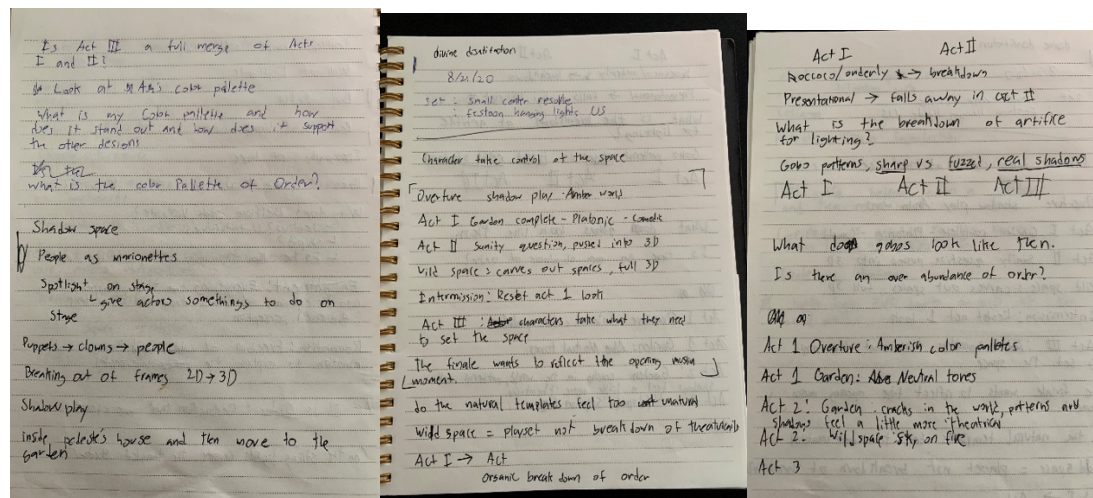 Is Act III a full merge of Acts
I and II?
Look at color palette
What is my Color pallette and how
does it stand out and how does it support
the other designs
What is the color Pallette of Order?
Shadow space
People as marionettes
Spotlight on stage
give actors somethings to do on
stage
Puppets → clowns → people
Breaking out of frames 2D → 3D
Shadow play
inside house and then move to the
garden
divine
8/21/20
set: small center
: festoon hanging lights US
Character take control of the space
Overture shadow play - Amber world
Act I Garden complete - Platonic - Comedic
Act II Sanity question, pushed into 3D
Wild space: carves out spaces, full 3D
Intermission: Reset act 1 look
Act III : characters take what they need
to set the space
The finale wants to reflect the opening
moment.
do the natural templates feel too unatural
Wild space = playset not breakdown of
Act I → Act
organic break down of order
Act I Act II
Roccoco/orderly → breakdown
Presentational → falls away in act II
What is the breakdown of artifice
for lighting?
Gobo patterns, sharp vs fuzzed, real shadows
Act I Act II Act III
What do gobos look like then.
Is there an over abundance of order?
Act 1 Overture: Amberish color palletes
Act 1 Garden: Neutral tones
Act 2: Garden cracks in the world, patterns and
shadows feel a little more theatrical
Act 2: Wildspace sky on fire
Act 3